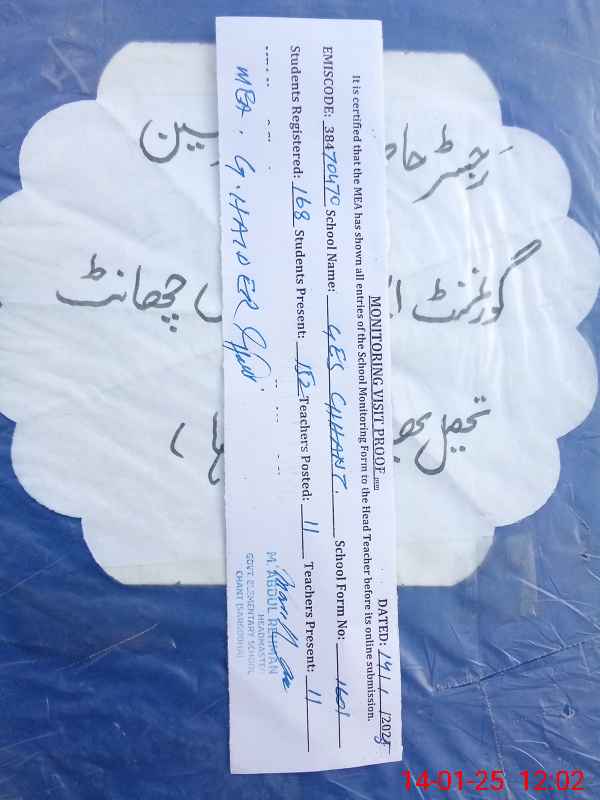 MONITORING VISIT PROOF
DATED: 14/1/2025
It is certified that the MEA has shown all entries of the School Monitoring Form to the Head Teacher before its online submission.
EMISCODE: 38470470 School Name: GES CHHANT. School Form No: 1601
Students Registered: 168 Students Present: 152 Teachers Posted: 11 Teachers Present: 11
MEA. G. HAIDER
M. ABDUL REHMAN
HEADMASTER
GOVT. ELEMENTARY SCHOOL
CHANT (SARGODHA)
رجسٹر
گورنمنٹ
چھانٹ
تحصیل
14-01-25 12:02